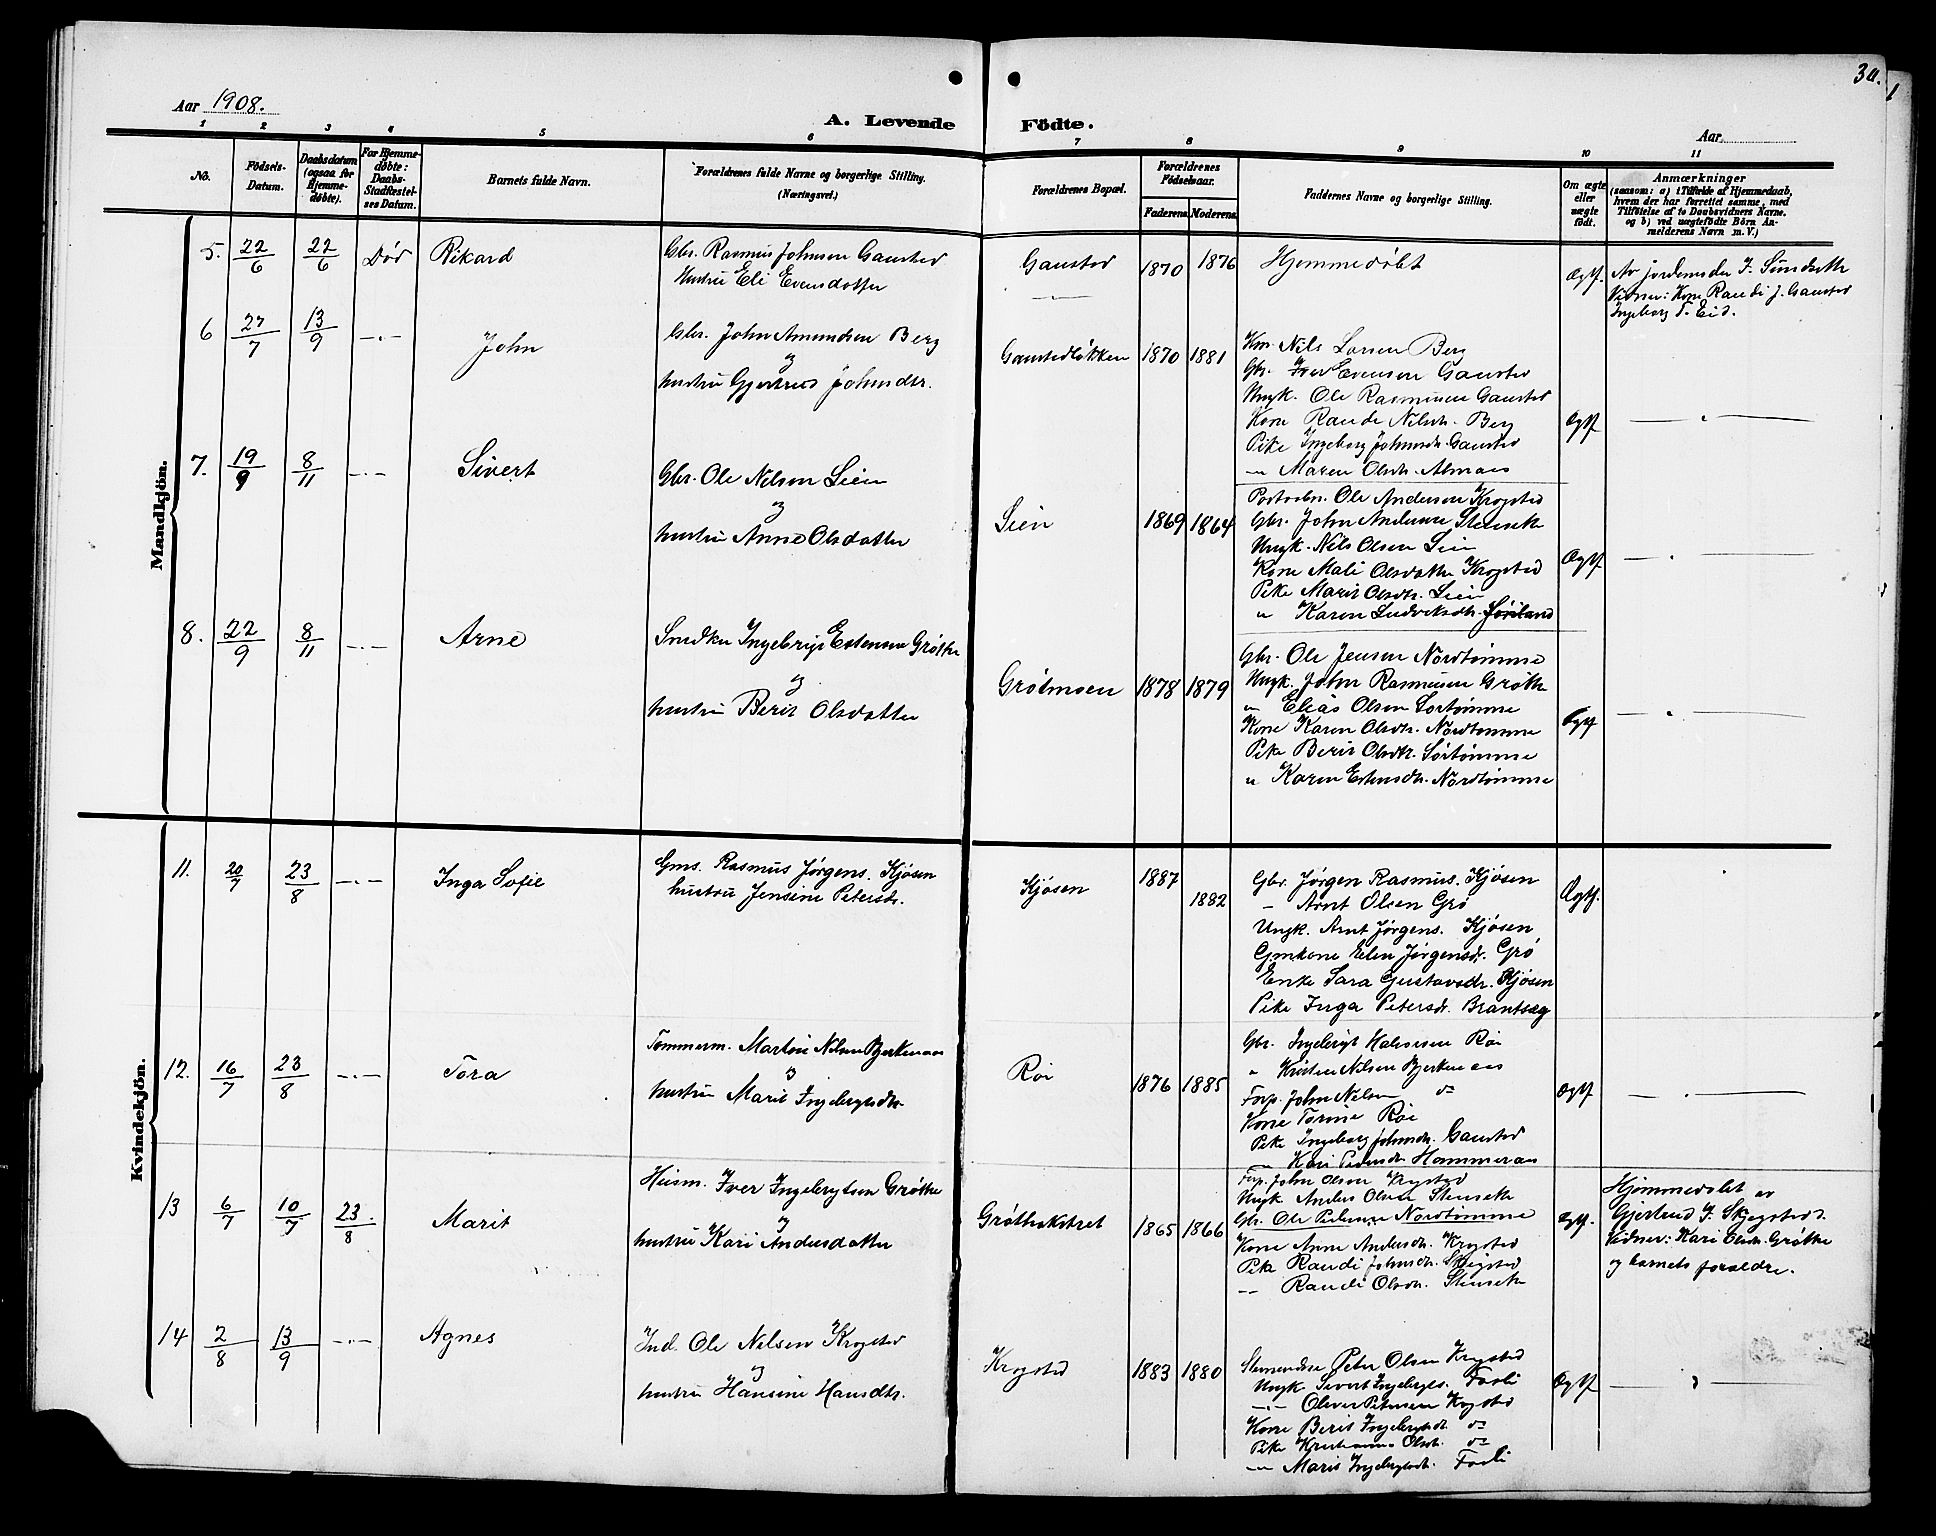 30.
1
Aar 1908.
A. Levende
Födte.
Aar
1 2 3 4 5 6 7 8 9 10 11
No.
Födsels-
Datum.
Daabsdatum
(ogsaa for
Hjemme-
döbte).
For Hjemme-
döbte:
Daabs-
Stadfæstel-
ses Datum.
Barnets fulde Navn.
Forældrenes fulde Navne og borgerlige Stilling.
(Næringsvei.)
Forældrenes Bopæl.
Forældrenes
Födselsaar.
Faderens. Moderens.
Faddernes Navne og borgerlige Stilling.
Om ægte
eller
uægte
født.
Anmærkninger
(saasom: a) i Tilfælde af Hjemmedaab,
hvem der har forrettet samme, med
Tilföielse af to Daabsvidners Navne.
og b) ved uægtefödte Börn An-
melderens Navn m. V.)
Mandkjön.
5. 22/6 22/6 Död Rikard
Gbr. Rasmus Johnsen Gaustad
Hustru Eli Evensdatter
Gaustad
1870 1876
Hjemmedøbt
Ægtf.
Av jordemoder J. Sundseth
Vidner: Kone Randi J. Gaustad
Ingeborg T. Eid.
6 27/7 13/9 -"- John
Gbr. John Amundsen Berg
og
hustru Gjertrud Johnsdtr.
Gaustadløkken 1870 1881
Kaar. Nils Larsen Berg
Gbr. Iver Evensen Gaustad
Ungk. Ole Rasmussen Gaustad
Kone Randi Nilsdr. Berg
Pike Ingeborg Johnsdr. Gaustad
-"- Maren Olsdr. Almaas
Ægtf
7. 19/9 8/11 -"- Sivert
Gbr. Ole Nilsen Lien
og
hustru Anne Olsdatter
Lien
1869 1864
Postaabn. Ole Andersen Krogstad
Gbr. John Andersen Stenseth
Ungk. Nils Olsen Lien
Kone Mali Olsdatter Krogstad
Pike Marit Olsdtr. Lien
" Karen Ludviksdtr. Sørland
Ægtf
8. 22/9 8/11 -"- Arne
Snedker Ingebrigt Estensen Grøtte
og
hustru Berit Olsdatter
Grøtmoen 1878 1879
Gbr. Ole Jensen Nordtømme
Ungk. John Rasmussen Grøtte
" Elias Olsen Sørtømme
Kone Karen Olsdtr. Nordtømme
Pike Berit Olsdtr. Sørtømme
" Karen Estensdtr. Nordtømme
Ægtf
Kvindekjön.
11. 20/7 23/8 -"- Inga Sofie
Gms. Rasmus Jørgens. Kjøsen
hustru Jensine Petersdr.
Kjøsen
1887
1882
Gbr. Jørgen Rasmus. Kjøsen
- Arnt Olsen Grø
Ungk. Arnt Jørgens. Kjøsen
Gmkone Elen Jørgensdr. Grø
Enke Sara Gustavsdr. Kjøsen
Pike Inga Petersdr. Brantsæg
Ægtf.
12. 16/7 23/8 -"- Tora
Tømmerm. Martin Nilsen Bjerkenaas
og
hustru Marit Ingebrigtsdtr
Røi
1876 1885
Gbr. Ingebrigt Halvorsen Røi
" Kristen Nilsen Bjerkenaas
Forp. John Nilsen do
Kone Torine Røi
Pike Ingeborg Johnsdr. Gaustad
-"- Kari Pedersdr Hammeraas
Ægtf
13 6/7 10/7 23/8 Marit
Husm. Iver Ingebrigtsen Grøtte
og
hustru Kari Andersdatter
Grøttesktret
1865 1866
Forp. John Olsen Krogstad
Ungk Anders Olsen Stenseth
Gbr. Ole Pedersen Nordtømme
Kone Anne Andersdr. Krogstad
Pike Randi Johnsdr. Skjegstad
-"- Randi Olsdtr. Stenseth
Ægtf.
Hjemmedøbt av
Gjertrud J. Skjegstad.
Vidner: Kari Olsdr. Grøtte
og barnets foreldre.
14 2/8 13/9 -"- Agnes
Ind. Ole Nilsen Krogstad
og
hustru Hansine Hansdtr.
Krogstad
1883 1880
Peter Olsen Krogstad
Ungk Sivert Ingebrigts. Fosli
-"- Oliver Petersen Krogstad
Kone Berit Ingebrigtsdr. do
Pike Kristianna Olsdr. do
-"- Marit Ingebrigtsdr. Fosli
Ægtf